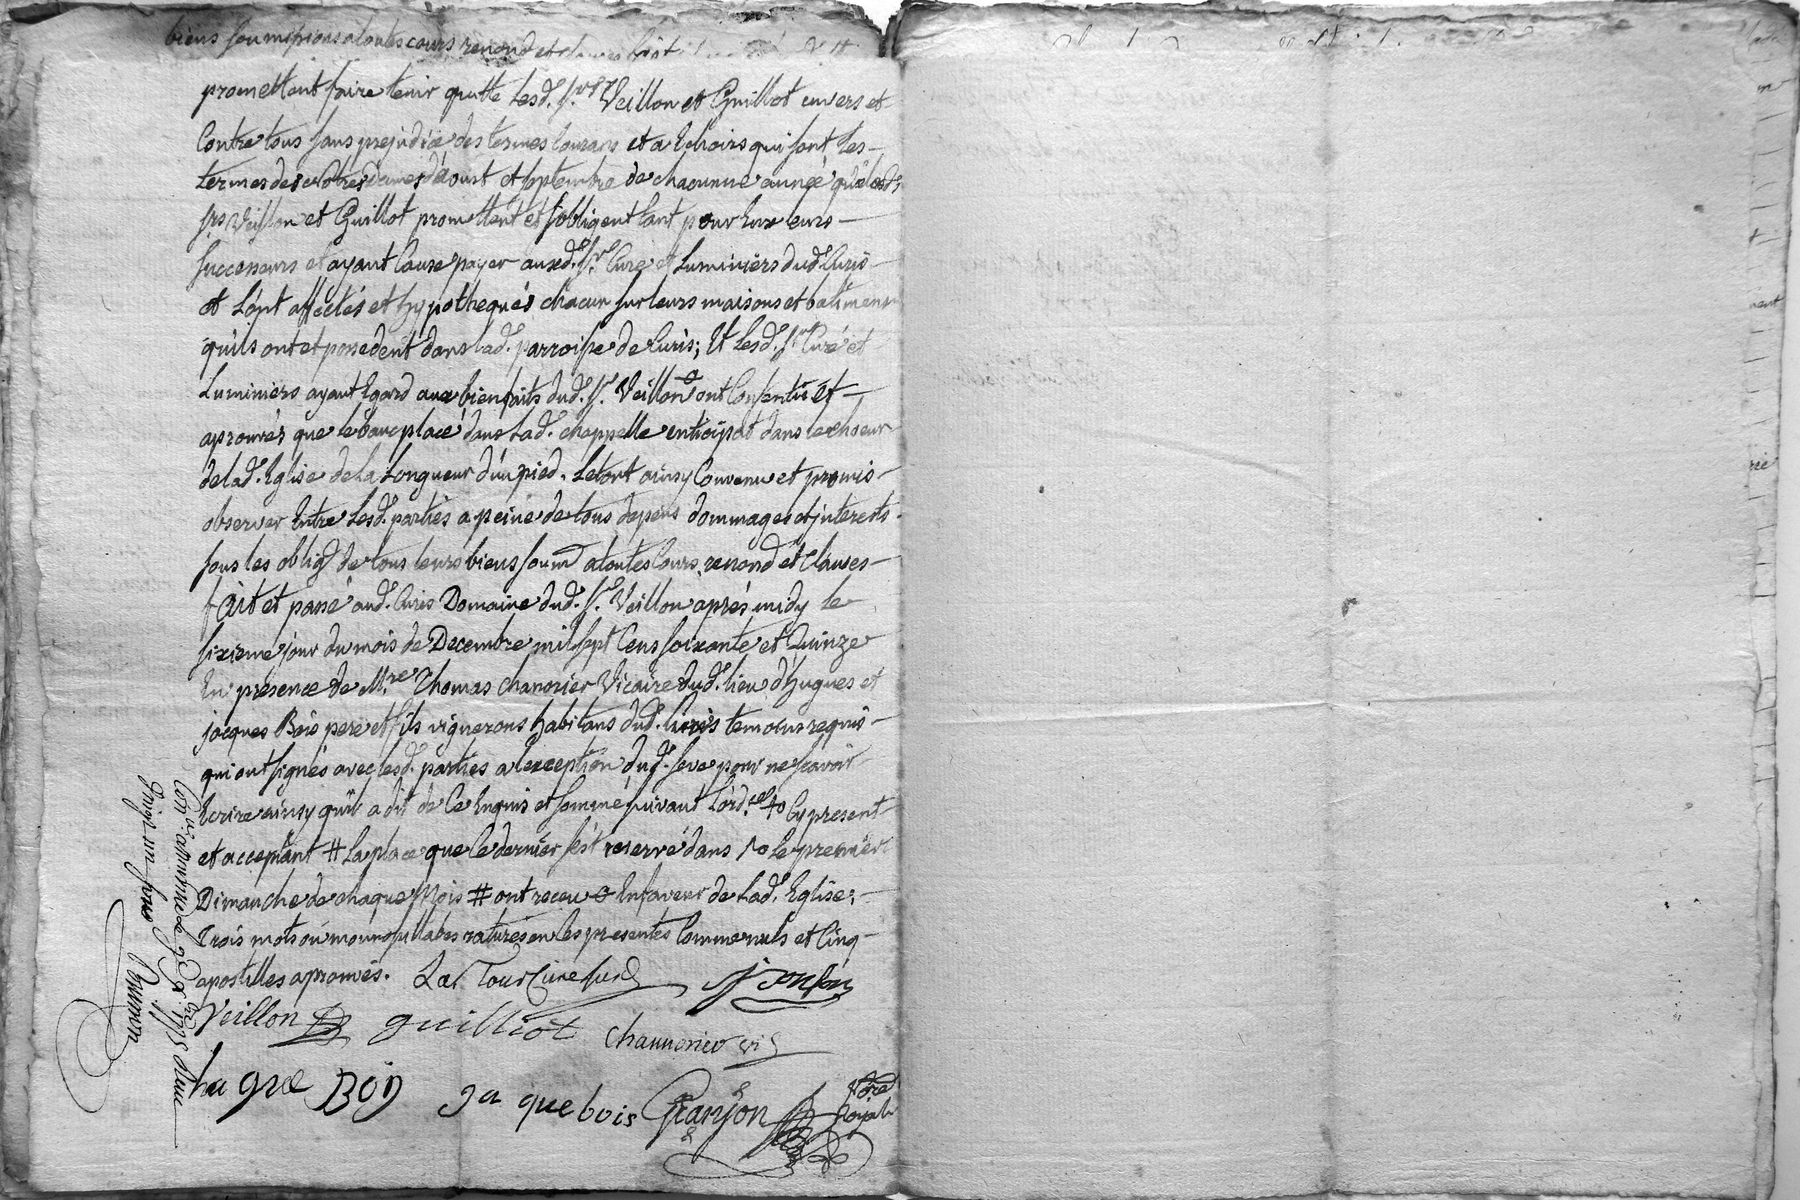 biens soumissions a toutes cours renond et clauses fait
promettant faire tenir quitte lesd. Srs Veillon et Guillot envers et
Contre tous sans prejudice des termes courans et a Echoirs qui sont les
termes des nôtres dames d'aoust et septembre de chacunne année que lesd.
Srs Veillon et Guillot promettent et s'obligent tant pour Eux leurs
successeurs et ayant Cause payer auxd. Sr Curé et Luminiers dud. Curis
et L'ont affectés et hypothequés chacun sur leurs maisons et batimens
qu'ils ont et possedent dans lad. parroisse de Curis; Et lesd. Sr Curé et
Luminiers ayant Egard aux bienfaits dud. Sr. Veillon ont Consentis et
aprouvés que le banc placé dans lad. chappelle enticipat dans le choeur
de lad. Eglise de la Longueur d'un pied. Le tout ainsy Convenu et promis
observer Entre lesd. parties a peine de tous depens dommages et interests
sous les oblig. de tous leurs biens soum a toutes Cours, renond et Clauses
fait et passé aud. Curis Domaine dud. Sr. Veillon aprés midy le
sixieme jour du mois de Decembre mil sept Cens soixante et Quinze
En présence de Mre Thomas Chanorier Vicaire dud. lieu d'hugues et
jacques Bois pere et fils vignerons habitans dud. Curis temoins requis
qui ont signés avec lesd. parties a l'exception dud. Seve pour ne scavoir
Ecrire ainsy qu'il a dit de Ce Enquis et sommé suivant L'ord.ce # Cy present
et acceptant # La place que Ce dernier s'est reservé dans # Le premier
Dimanche de chaque Mois # ont receu # En faveur de Lad. Eglise;
Trois mots ou monnosillabes raturés en les presentes Comme nuls et Cinq
apostilles aprouvés. La Tour Curé sud
Veillon guilliot Channorier vic
hu gue Bois Ja que bois Granjon Nore Royal